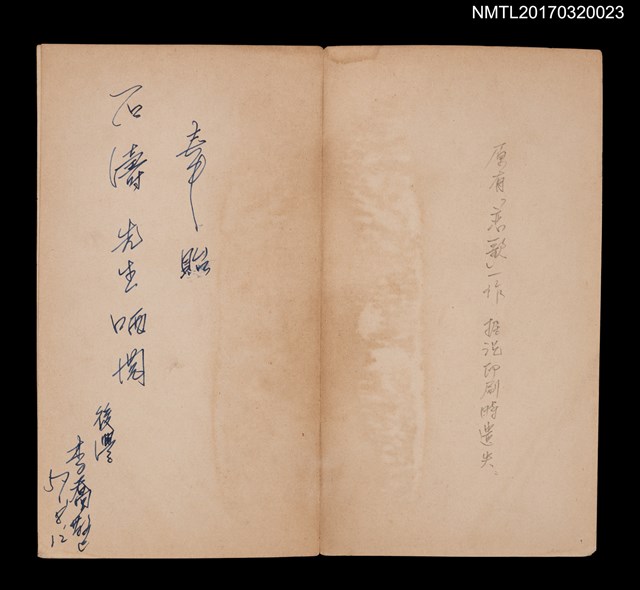 NMTL20170320023
原有「哀歌」一作 据说印刷時遺失。
奉貽
石濤先生哂閱
後學
李喬敬
57.8.12